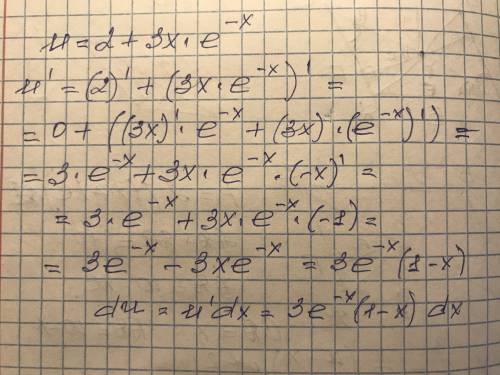 u = 2 + 3x · e^{-x}
u' = (2)' + (3x · e^{-x})' =
= 0 + ((3x)' · e^{-x} + (3x) · (e^{-x})') =
= 3 · e^{-x} + 3x · e^{-x} · (-x)' =
= 3 · e^{-x} + 3x · e^{-x} · (-1) =
= 3e^{-x} - 3xe^{-x} = 3e^{-x} (1-x)
du = u'dx = 3e^{-x}(1-x) dx